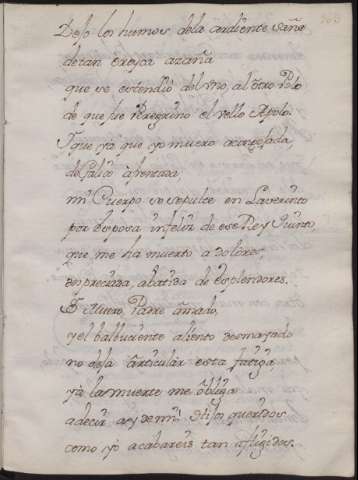 Deso los humos dela ardiente saña
detan exeça azaña
que se estendió del vno, al otro Polo
de que fue Peregrino el vello Apolo.
Y que ya que yo muero acongojada,
de Galia afrentada
mi Cuerpo se sepulte en Laverinto
por Esposa infeliz de ese Rey Quinto,
que me ha muerto a dolores,
despreciada, abatida de esplendores.
Yo Muero, Padre amado,
y el balbuciente aliento desmayado
no deja articular esta fatiga
ya la muerte me obliga
adecir ay de mi! Hijos queridos
como yo acabareis tan afligidos.